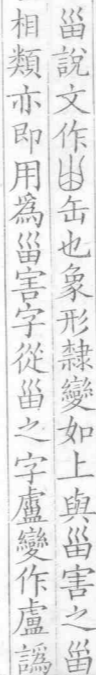 甾說文作𠙹缶也象形隸變如上與甾害之甾
相類亦即用為甾害字從甾之字盧變作盧譌